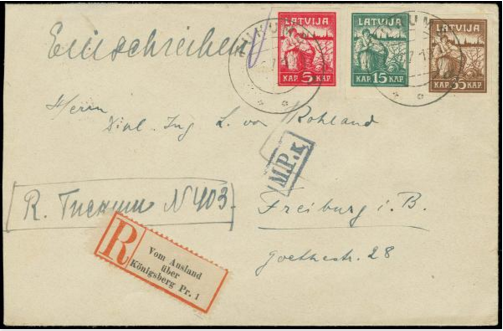 Einschreiben
LATVIJA
5
KAP. KAP
LATVIJA
15
KAP KAP
LATVIJA
35
KAP. KAP
Herrn
Dipl. Ing L. von Rohland
M.P.K.
R. Тuскumm N 403.
Freiburg i. B.
Goethestr. 28
R
Vom Ausland
über
Königsberg Pr. 1